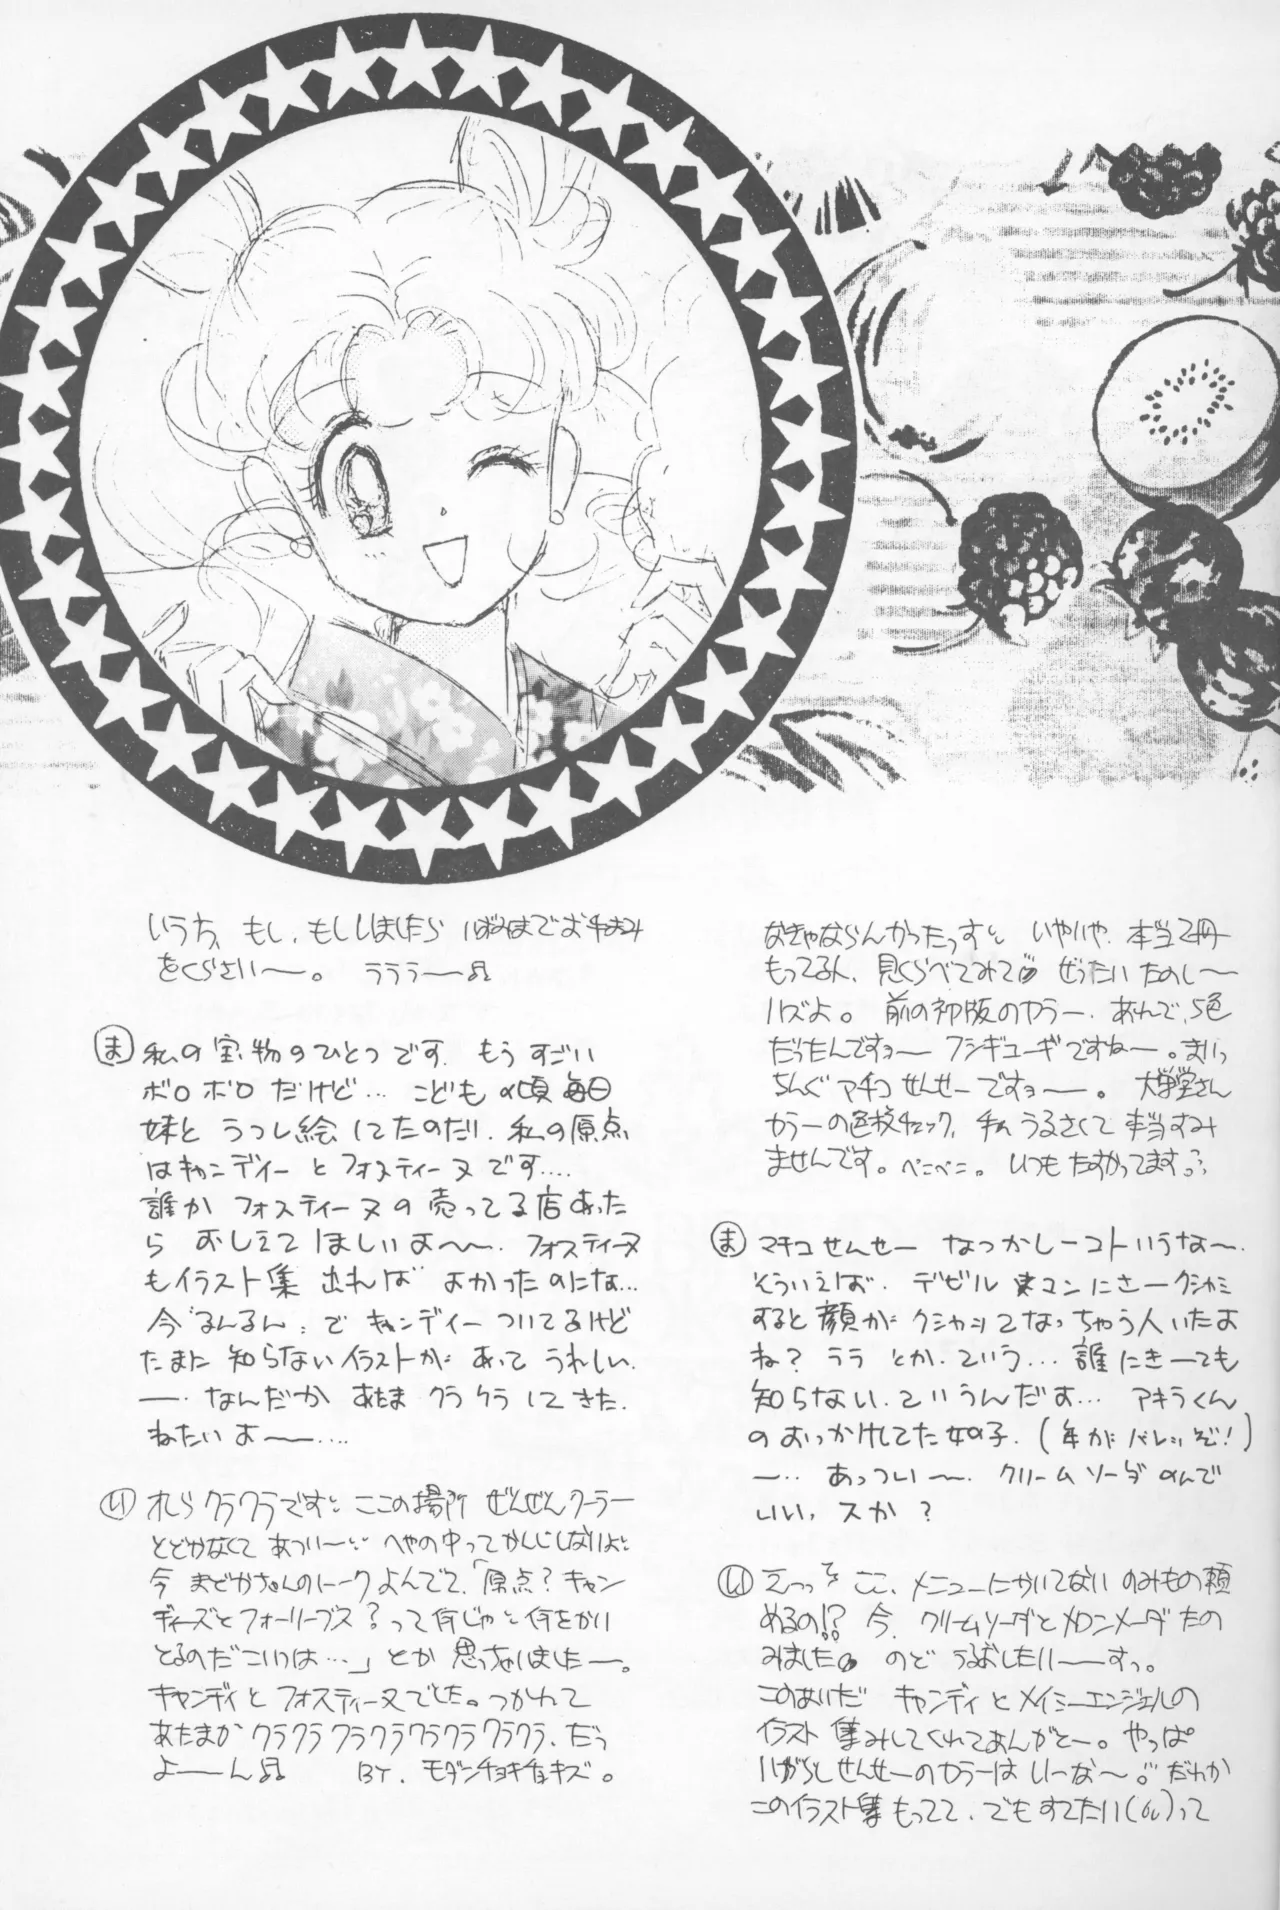 いうち、もし、もししましたら いばみまでお手おみ
をくらさい〜。 ラララー♫
ま 私の宝物のひとつです。もうすごい
ボロボロだけど… こどもの頃毎日
妹と うつし絵してたのだ!! 私の原点
はキャンディーとフォスティーヌです….
誰か フォスティーヌの売ってる店あった
ら おしえてほしいよ〜〜. フォスティーヌ
もイラスト集出れば よかったのにな…
今"るんるん"で キャンディーついてるけど
たまに知らないイラストがあってうれしい.
ー.. なんだか あたま クラクラしてきた.
ねたいよ〜〜….
い オレらクラクラですぅ ここの場所 ぜんぜんクーラー
とどかなくて あつい〜… へやの中ってかんじしないよぅ
今 まどかちゃんのトークよんでて、「原点?キャン
ディーズとフォーリーブス?って何じゃと何をかい
とるのだこいつは…」とか思っちゃいましたー。
キャンディとフォスティーヌでした。つかれて
あたまか クラクラクラクラクラクラクラクラ. だう
よーーん♫ BY. モダンチョキチョキズ。
なきゃならんかったっすぅ。いやいや、本当2冊
もってる人、見くらべてみて ぜったいたのしー
ハズよ。 前の初版のカラー. あんで、5色
だったんですョー フシギユーギですねー。まいっ
ちんぐマチコせんせーですョー。 大学堂さん
カラーの色校チェック、私うるさくて本当すみ
ませんです。ぺこぺこ。いつもたすかってます。
ま マチコせんせー なつかしーコトいうな〜.
そういえば、デビルマンにさークシャミ
すると顔がクシャッてなっちゃう人いたよ
ね? ララとか。ていう… 誰にきーても
知らない。ていうんだよ… アキラくん
のおっかけしてた女の子. (年がバレッぞ!)
ー.. あっつい〜. クリームソーダのんで
いい, スか?
い えっっ ここ、メニューにかいてない のみもの頼
めるの!? 今、クリームソーダとメロンソーダたの
みました のど うるおしたいーーすっ。
このあいだ キャンディとメイミーエンジェルの
イラスト集みしてくれてあんがとー。やっぱ
いがらしせんせーのカラーは いーな〜。だれか
このイラスト集もってて、でもすてたい って